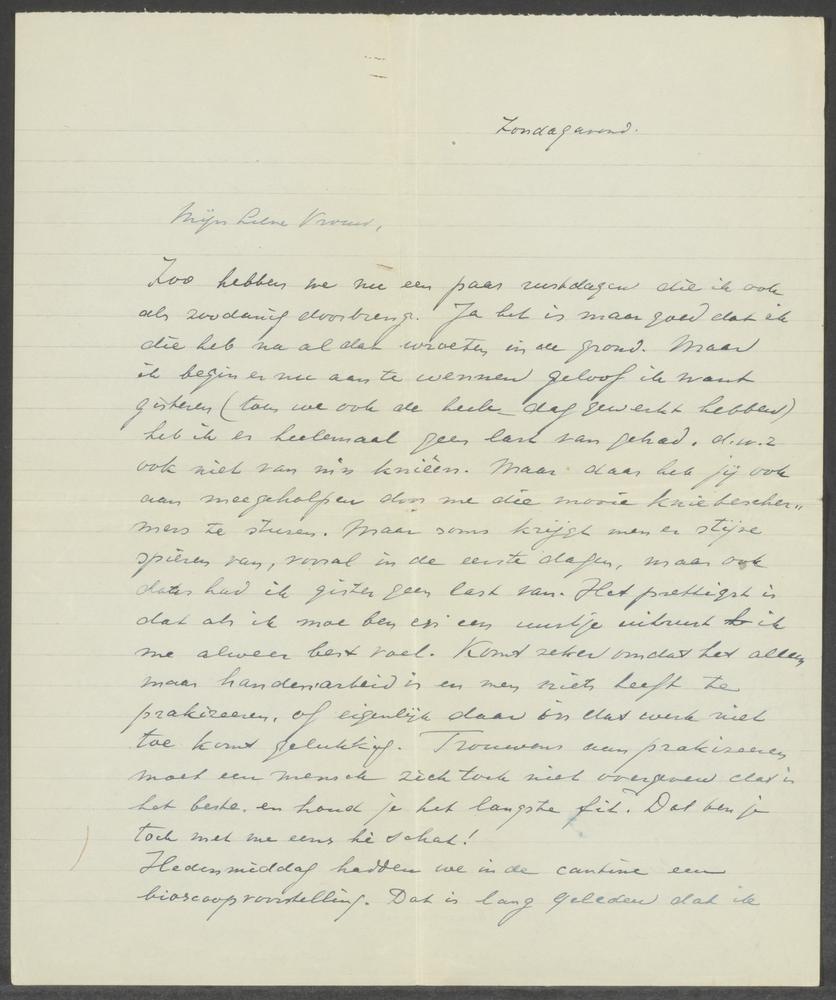 Zondagavond.
Mijn Lieve Vrouw,
Zoo hebben we nu een paar rustdagen die ik ook
als zoodanig doorbreng. Ja het is maar goed dat ik
die heb na al dat wroeten in de grond. Maar
ik begin er nu aan te wennen geloof ik want
gisteren (toen we ook de heele dag gewerkt hebben)
heb ik er heelemaal geen last van gehad, d.w.z
ook niet van m'n knieën. Maar daar heb jij ook
aan meegeholpen door me die mooie kniebescher„
mers te sturen. Maar soms krijgt men er stijve
spieren van, vooral in de eerste dagen, maar ook
daar had ik gister geen last van. Het prettigst is
dat als ik moe ben en een uurtje uitrust ik
me alweer best voel. Komt zeker omdat het alleen
maar handenarbeid is en men niets heeft te
prakizeeren, of eigenlijk daar in dat werk niet
toe komt gelukkig. Trouwens aan prakizeeren
moet een mensch zich toch niet overgeven dat is
het beste. en houd je het langste fit. Dat ben je
toch met me eens hè schat!
Hedenmiddag hadden we in de cantine een
bioscoopvoorstelling. Dat is lang geleden dat ik